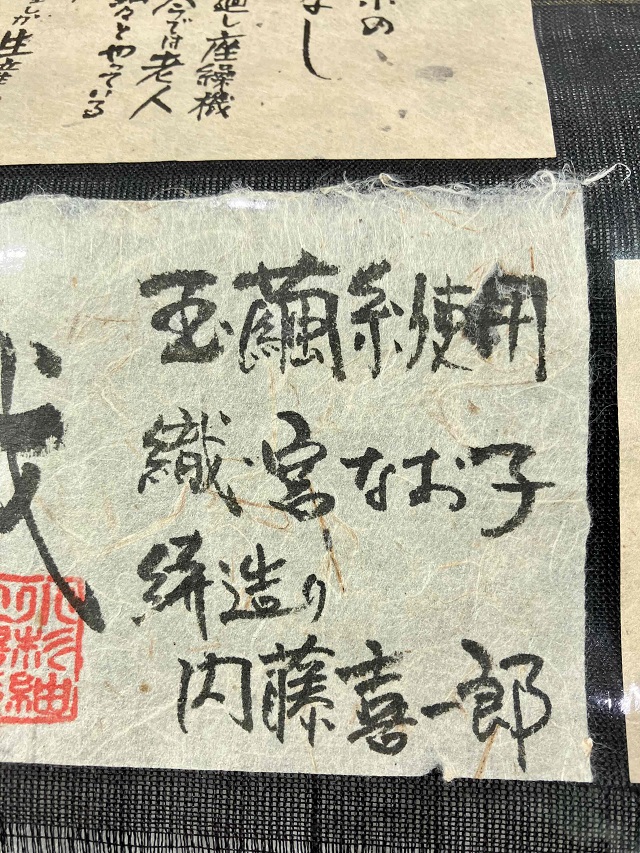 廻し座繰機
今では老人
々とやっている
生産
玉繭糸使用
織 宮なお子
絣造り
内藤喜一郎